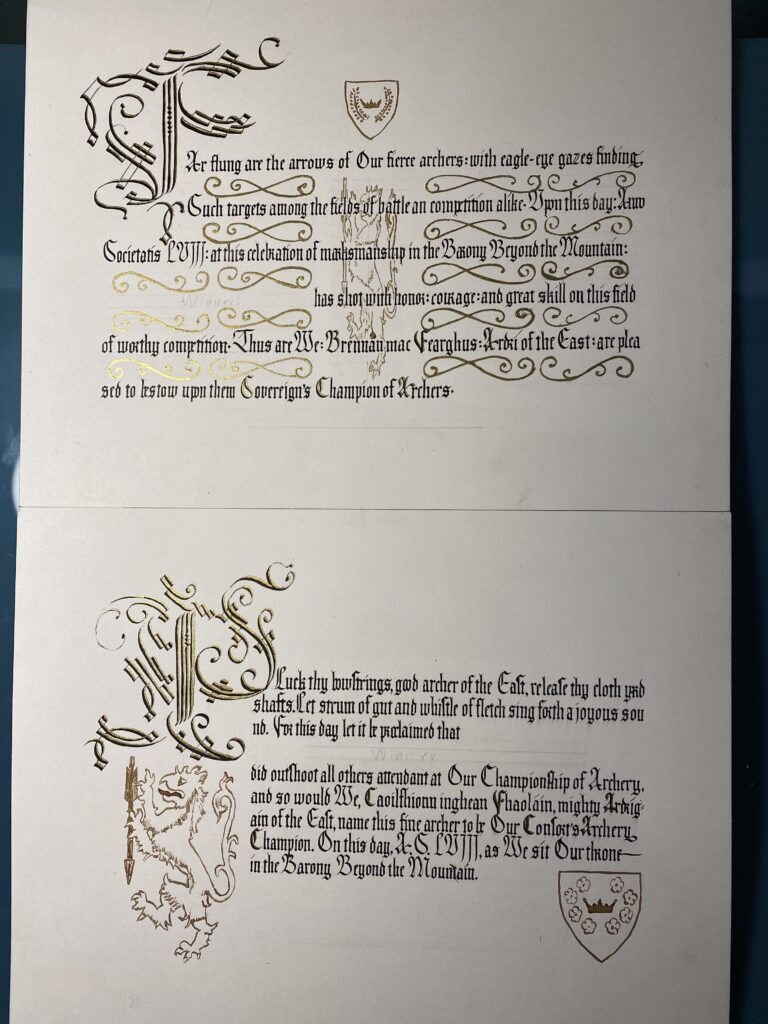 Far flung are the arrows of Our fierce archers: with eagle-eye gazes finding,
Such targets among the fields of battle an competition alike. Upon this day: Anno
Societatis LVIII: at this celebration of marksmanship in the Barony Beyond the Mountain:
Winner! has shot with honor: courage: and great skill on this field
of worthy competition. Thus are We: Brennan mac Fearghus: Ardri of the East: are plea
sed to bestow upon them Sovereign's Champion of Archers.
Pluck thy bowstrings, good archer of the East, releaſe thy cloth yard
shafts. Let strum of gut and whiſtle of fletch sing forth a joyous sou
nd. For this day let it be proclaimed that
Winner
did outſhoot all others attendant at Our Championſhip of Archery,
and so would We, Caoilfhionn inghean Fhaoláin, mighty Ardrig-
ain of the Eaſt, name this fine archer to be Our Conſort's Archery
Champion. On this day, A.S. LVIII, as We sit Our throne
in the Barony Beyond the Mountain.